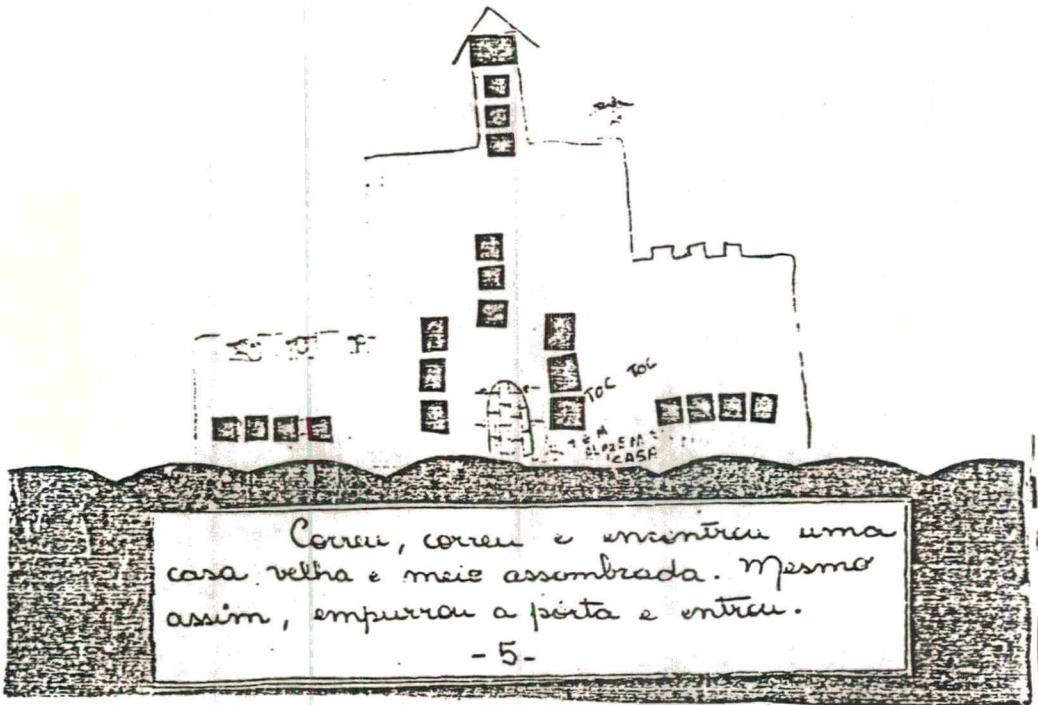 TOC TOC
TEM
CASA
Correu, correu e encontrou uma
casa velha e meio assombrada. Mesmo
assim, empurrou a porta e entrou.
-5-